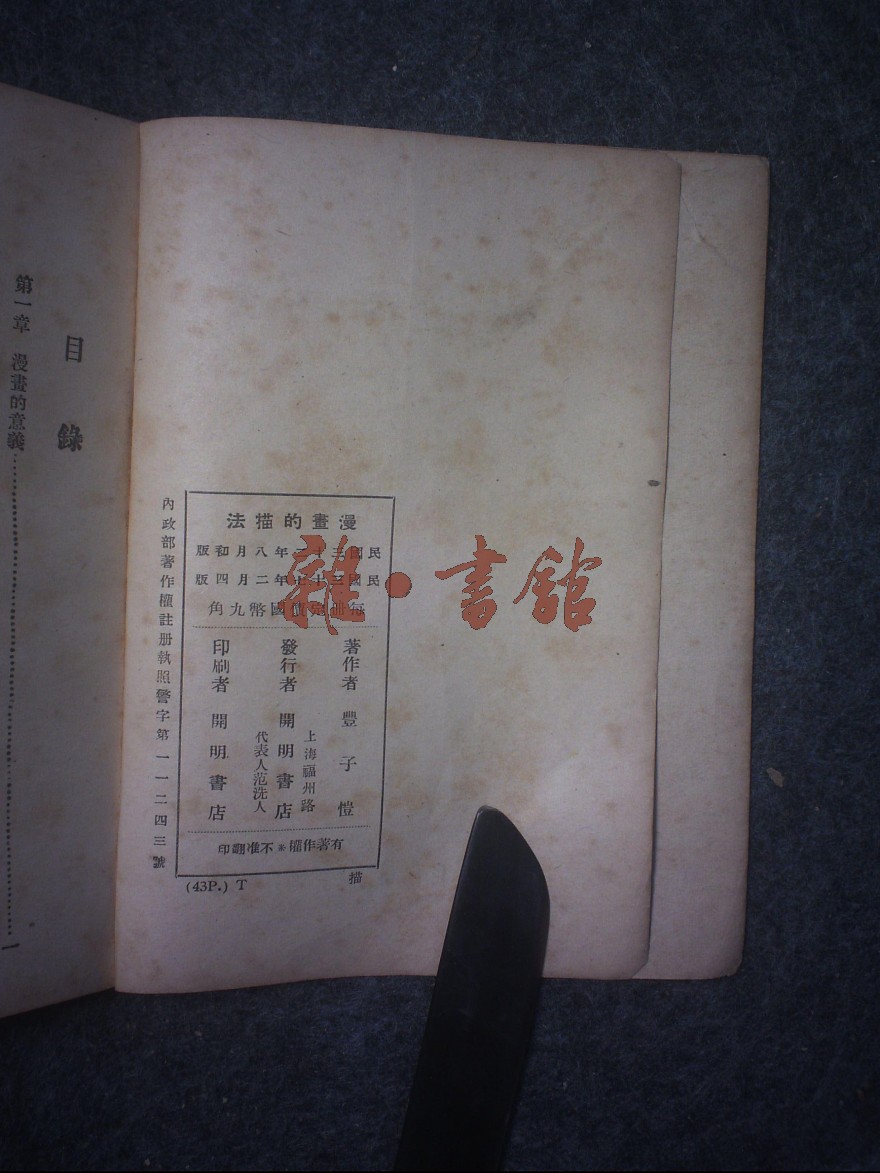 目錄
第一章 漫畫的意義……………………一
漫畫的描法
民國三十二年八月初版
民國三十七年二月四版
每冊定價國幣九角
著作者 豐子愷
上海福州路
發行者 開明書店
代表人范洗人
印刷者 開明書店
有著作權＊不准翻印
內政部著作權註冊執照警字第一一二四三號
(43P.) T 描
雜·書館